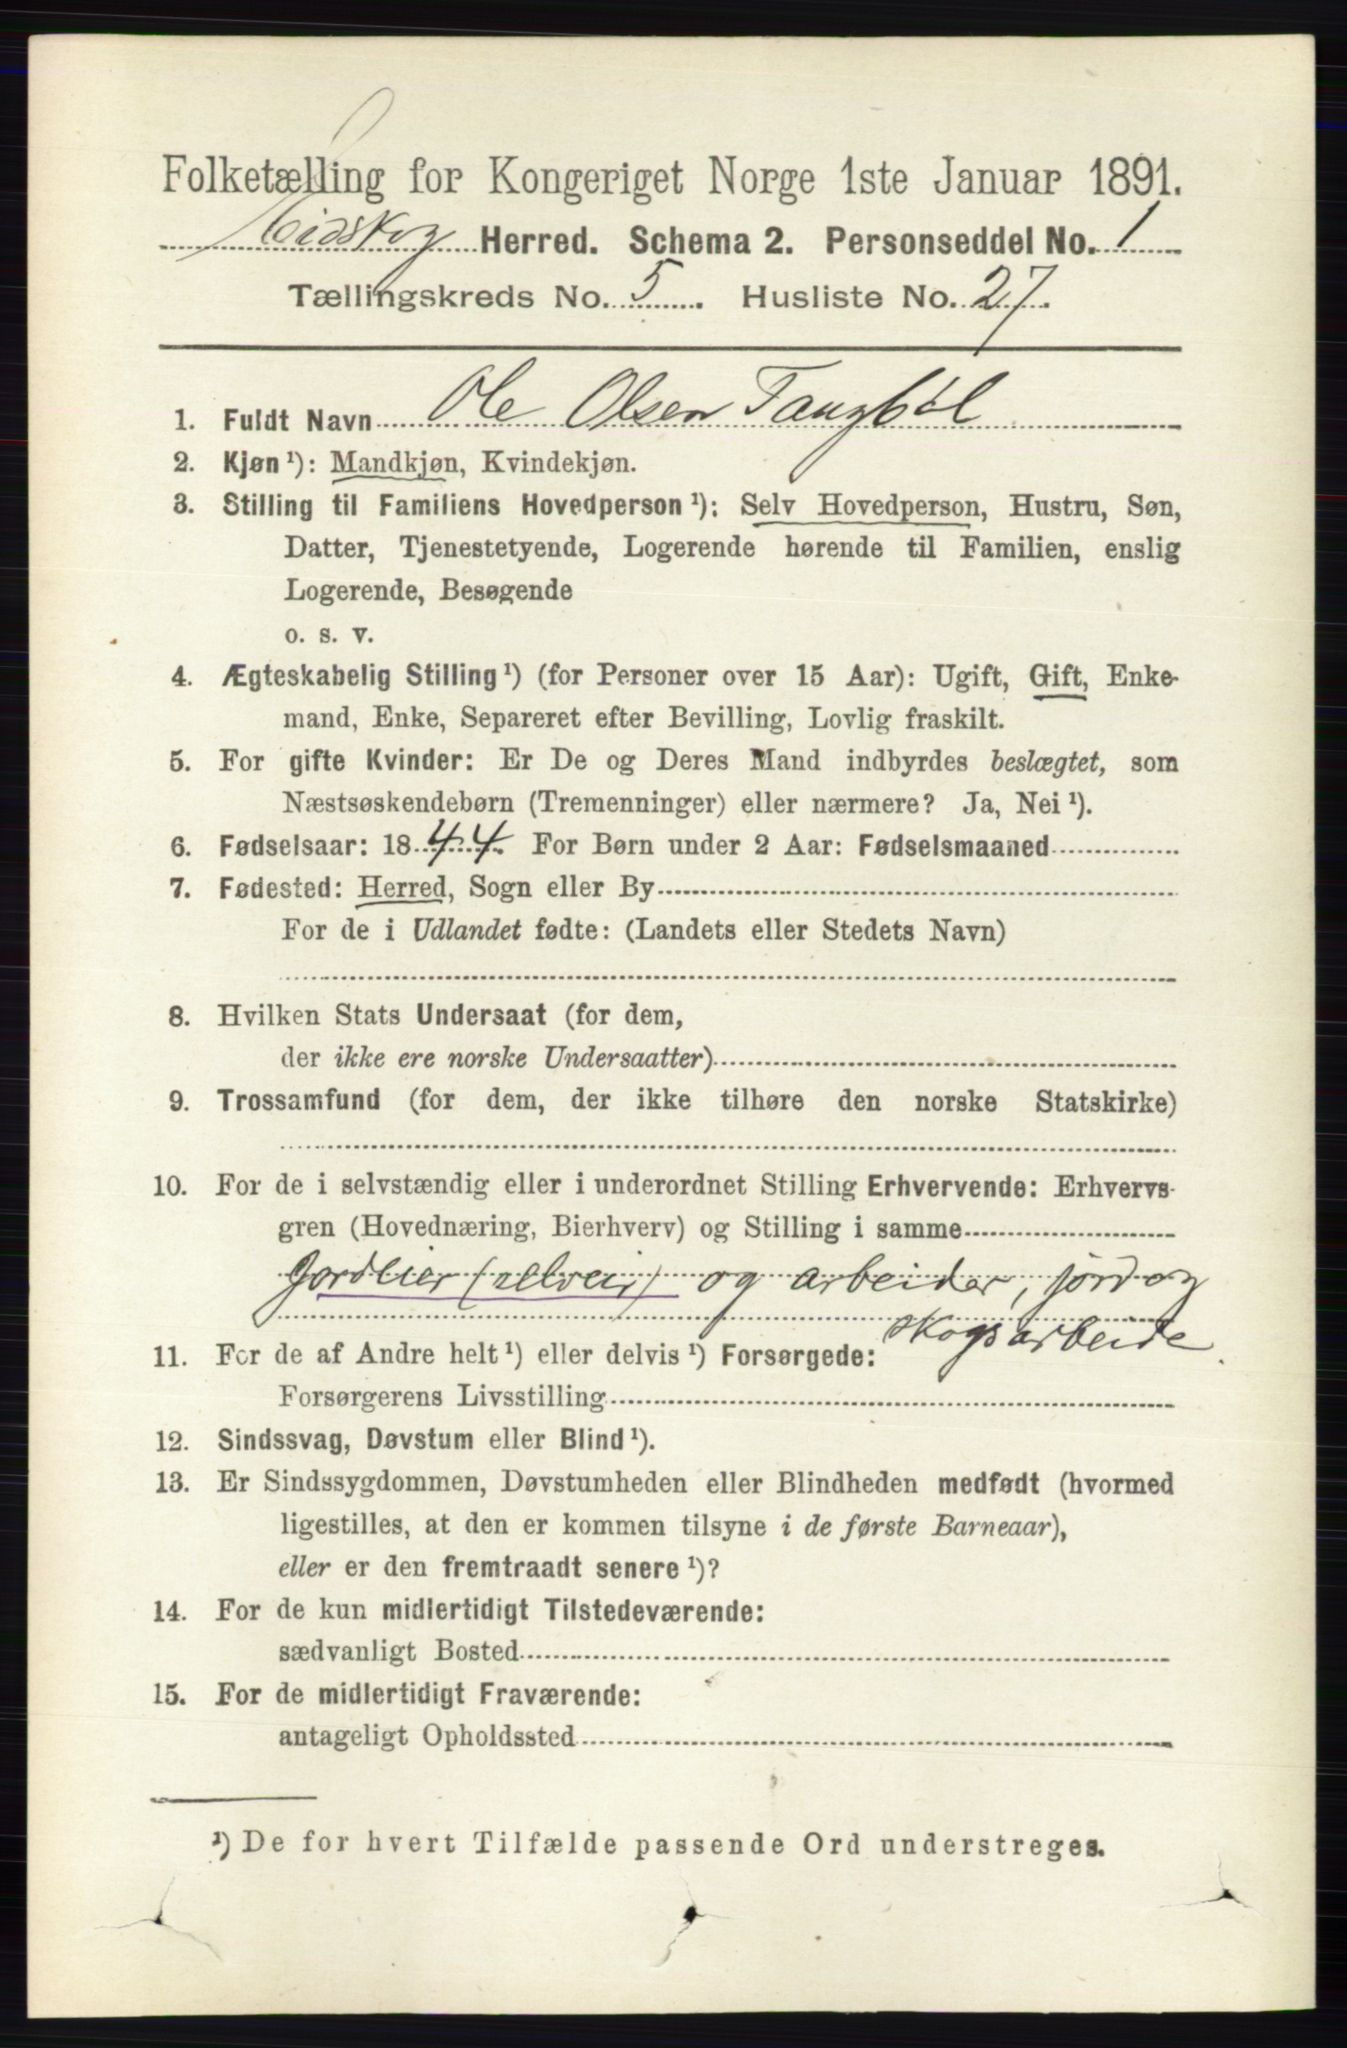 Folketælling for Kongeriget Norge 1ste Januar 1891.
Eidskog Herred. Schema 2. Personseddel No. 1
Tællingskreds No. 5. Husliste No. 27.
1. Fuldt Navn Ole Olsen Tangböl
2. Kjøn¹): Mandkjøn, Kvindekjøn.
3. Stilling til Familiens Hovedperson¹): Selv Hovedperson, Hustru, Søn,
Datter, Tjenestetyende, Logerende hørende til Familien, enslig
Logerende, Besøgende
o. s. v.
4. Ægteskabelig Stilling¹) (for Personer over 15 Aar): Ugift, Gift, Enke-
mand, Enke, Separeret efter Bevilling, Lovlig fraskilt.
5. For gifte Kvinder: Er De og Deres Mand indbyrdes beslægtet, som
Næstsøskendebørn (Tremenninger) eller nærmere? Ja, Nei¹).
6. Fødselsaar: 1844. For Børn under 2 Aar: Fødselsmaaned
7. Fødested: Herred, Sogn eller By
For de i Udlandet fødte: (Landets eller Stedets Navn)
8. Hvilken Stats Undersaat (for dem,
der ikke ere norske Undersaatter)
9. Trossamfund (for dem, der ikke tilhøre den norske Statskirke)
10. For de i selvstændig eller i underordnet Stilling Erhvervende: Erhvervs-
gren (Hovednæring, Bierhverv) og Stilling i samme
Jordeier (selveier) og arbeider, jord og
skogsarbeide.
11. For de af Andre helt¹) eller delvis¹) Forsørgede:
Forsørgerens Livsstilling
12. Sindssvag, Døvstum eller Blind¹).
13. Er Sindssygdommen, Døvstumheden eller Blindheden medfødt (hvormed
ligestilles, at den er kommen tilsyne i de første Barneaar),
eller er den fremtraadt senere¹)?
14. For de kun midlertidigt Tilstedeværende:
sædvanligt Bosted
15. For de midlertidigt Fraværende:
antageligt Opholdssted
¹) De for hvert Tilfælde passende Ord understreges.